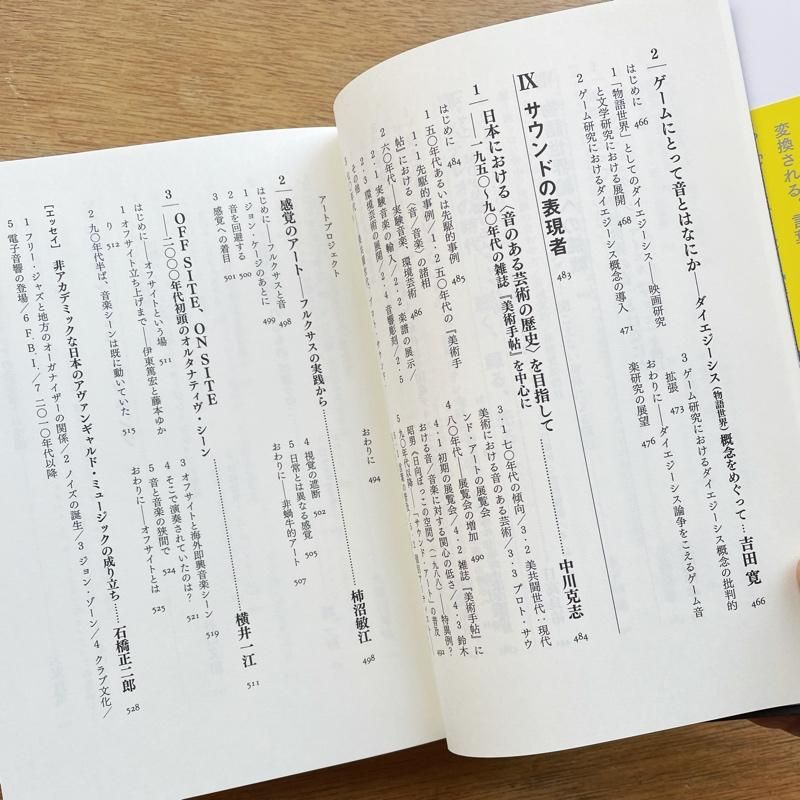 2―ゲームにとって音とはなにか――ダイエジーシス(物語世界)概念をめぐって…吉田 寛 466
はじめに 466
1「物語世界」としてのダイエジーシス――映画研究
と文学研究における展開 468
2 ゲーム研究におけるダイエジーシス概念の導入
471
3 ゲーム研究におけるダイエジーシス概念の批判的
拡張 473
おわりに――ダイエジーシス論争をこえるゲーム音
楽研究の展望 476
IX サウンドの表現者 483
1―日本における〈音のある芸術の歴史〉を目指して
――一九五〇〜九〇年代の雑誌『美術手帖』を中心に……中川克志 484
はじめに 484
1 五〇年代あるいは先駆的事例 485
1・1 先駆的事例/1・2 五〇年代の『美術手
帖』における〈音/音楽〉の諸相
2 六〇年代――実験音楽、環境芸術 486
2・1 実験音楽の輸入/2・2 楽譜の展示/
2・3 環境芸術の展開/2・4 音響彫刻/2・5
その他
3・1 七〇年代の傾向/3・2 美共闘世代:現代
美術における音のある芸術/3・3 プロト・サウ
ンド・アートの展覧会
4 八〇年代――展覧会の増加 490
4・1 初期の展覧会/4・2 雑誌『美術手帖』に
おける音/音楽に対する関心の低さ/4・3 鈴木
昭男《日向ぼっこの空間》(一九八八)――特異例?
5 九〇年代以降――「サウンド・アート」の普及 492
おわりに 494
アートプロジェクト
2―感覚のアート――フルクサスの実践から……柿沼敏江 498
はじめに――フルクサスと音 498
1 ジョン・ケージのあとに 499
2 音を回避する 500
3 感覚への着目 501
4 視覚の遮断 502
5 日常とは異なる感覚 505
おわりに――非蝸牛的アート 507
3―OFF SITE、ON SITE
――二〇〇〇年代初頭のオルタナティヴ・シーン……横井一江 511
はじめに――オフサイトという場 511
1 オフサイト立ち上げまで――伊東篤宏と藤本ゆか
り 512
2 九〇年代半ば、音楽シーンは既に動いていた
515
3 オフサイトと海外即興音楽シーン 519
4 そこで演奏されていたのは? 521
5 音と音楽の狭間で 524
おわりに――オフサイトとは 525
[エッセイ] 非アカデミックな日本のアヴァンギャルド・ミュージックの成り立ち……石橋正二郎 528
1 フリー・ジャズと地方のオーガナイザーの関係/2 ノイズの誕生/3 ジョン・ゾーン/4 クラブ文化/
5 電子音響の登場/6 F.B.I./7 二〇一〇年代以降
変換される、言葉